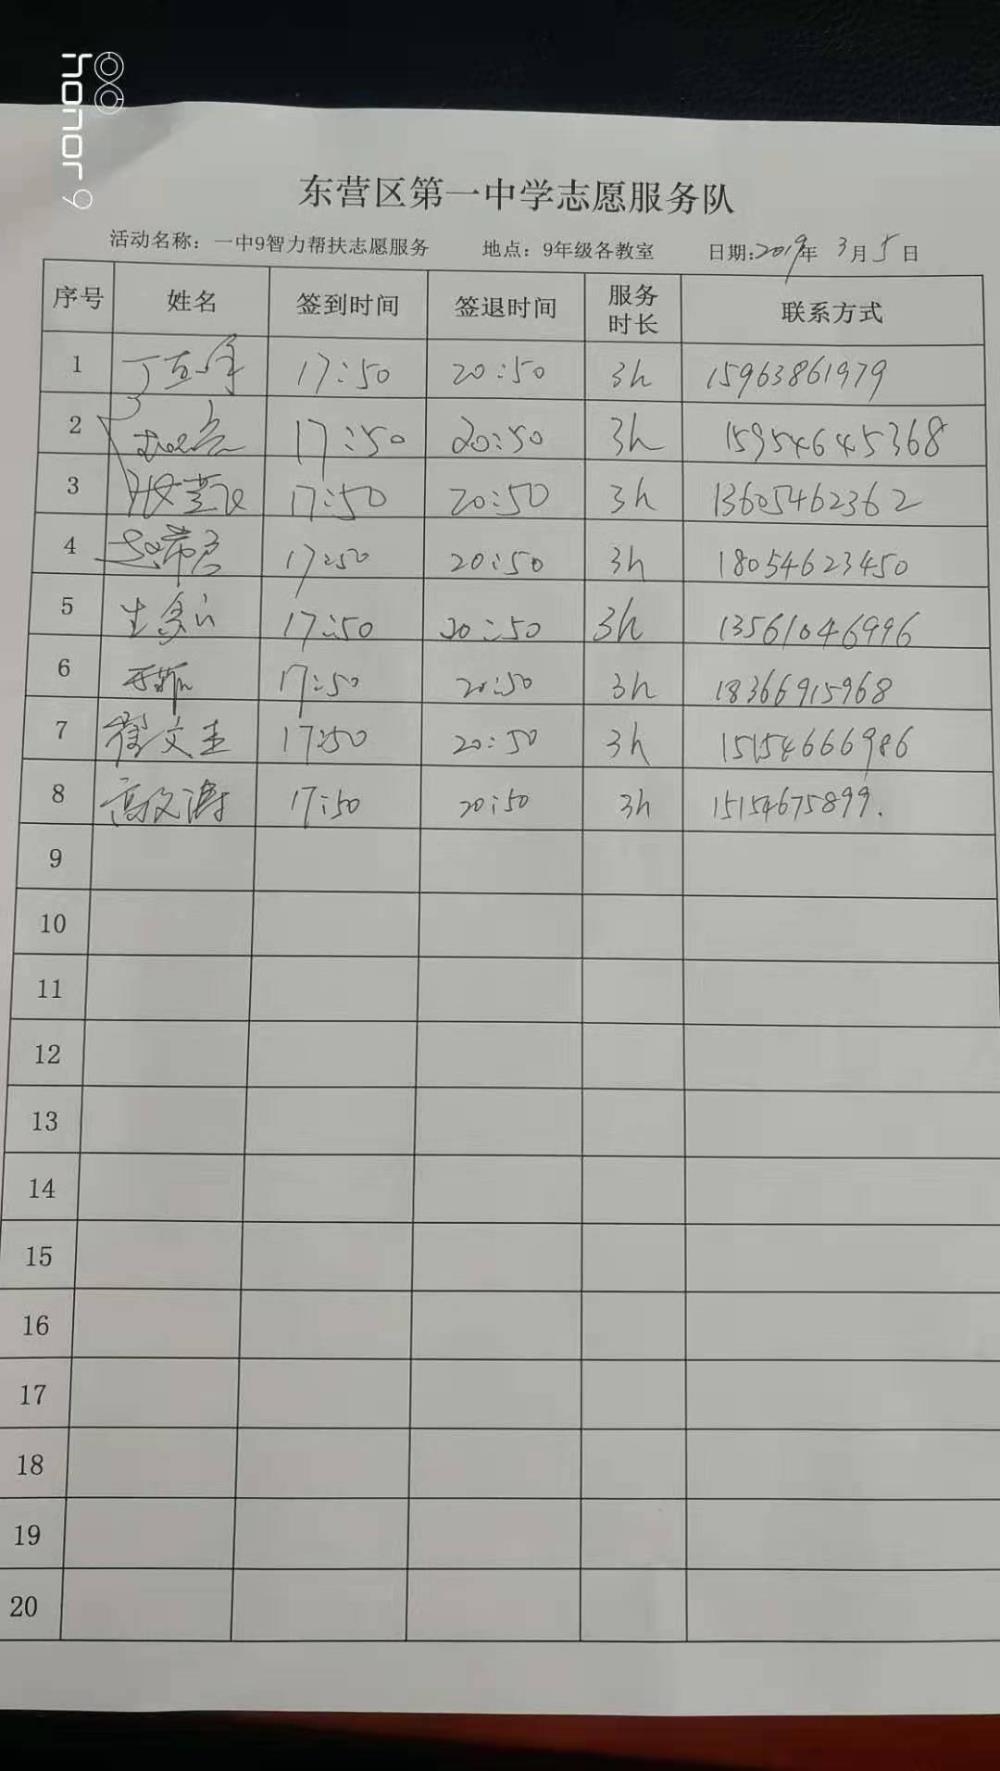 honor 9
东营区第一中学志愿服务队
活动名称：一中9智力帮扶志愿服务 地点：9年级各教室 日期:2019年 3月5日
序号 姓名 签到时间 签退时间 服务时长 联系方式
1 17:50 20:50 3h 15963861979
2 17:50 20:50 3h 15954645368
3 17:50 20:50 3h 13605462362
4 赵常君 17:50 20:50 3h 18054623450
5 17:50 20:50 3h 13561046996
6 17:50 20:50 3h 18366915968
7 翟文圭 17:50 20:50 3h 15154666986
8 高文涛 17:50 20:50 3h 15154675899.
9
10
11
12
13
14
15
16
17
18
19
20